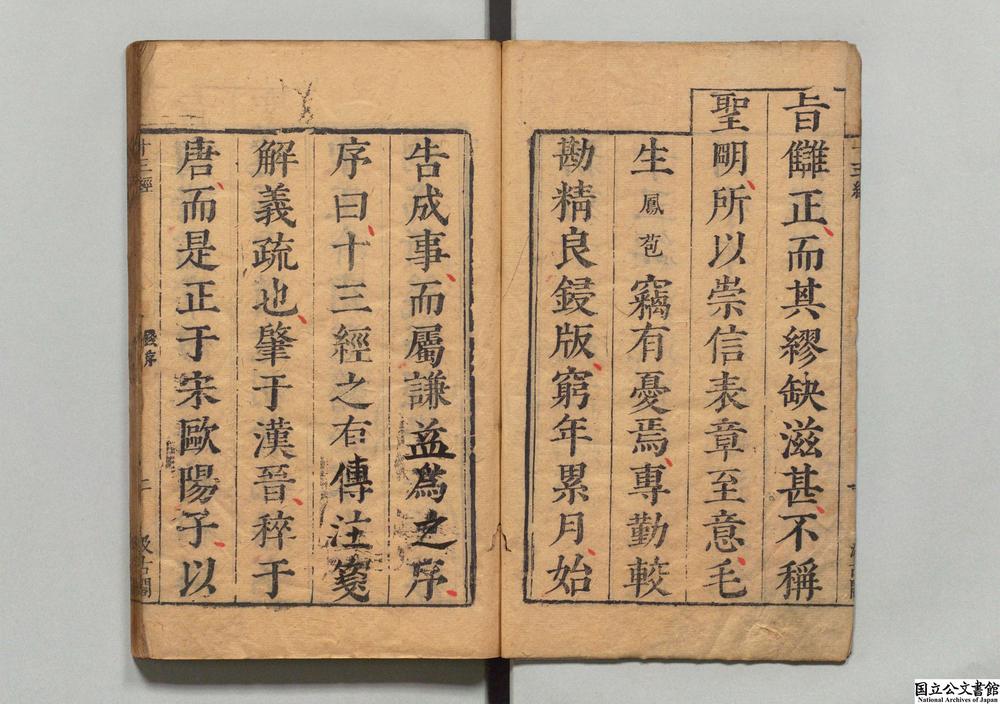 旨讎正而其繆缺滋甚不稱
聖明所以崇信表章至意毛
生鳳苞竊有憂焉專勤較
勘精良鋟版窮年累月始
告成事而屬謙益爲之序
序曰十三經之有傳注箋
解義疏也肇于漢晉稡于
唐而是正于宋歐陽子以
十三經
錢序
二
汲古閣
国立公文書館
National Archives of Japan